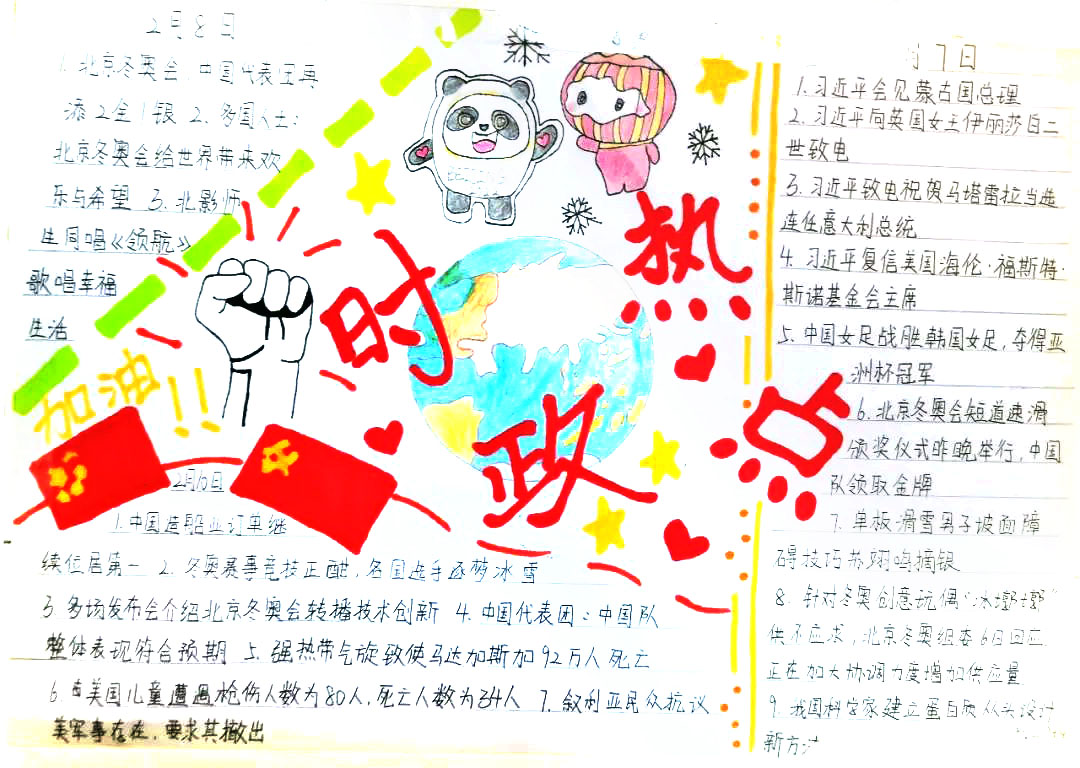 2月8日
1. 北京冬奥会,中国代表团再
添2金1银 2. 多国人士:
北京冬奥会给世界带来欢
乐与希望 3. 北影师
生同唱《领航》
歌唱幸福
生活
加油!!
时政热点
月7日
1. 习近平会见蒙古国总理
2. 习近平向英国女王伊丽莎白二
世致电
3. 习近平致电祝贺马塔雷拉当选
连任意大利总统
4. 习近平复信美国海伦·福斯特·
斯诺基金会主席
5. 中国女足战胜韩国女足,夺得亚
洲杯冠军
6. 北京冬奥会短道速滑
颁奖仪式昨晚举行,中国
队领取金牌
7. 单板滑雪男子坡面障
碍技巧苏翊鸣摘银
8. 针对冬奥创意玩偶“冰墩墩”
供不应求,北京冬奥组委6日回应
正在加大协调力度增加供应量
9. 我国科学家建立蛋白质从头设计
新方法
2月10日
1. 中国造船业订单继
续位居第一 2. 冬奥赛事竞技正酣,各国选手逐梦冰雪
3. 多场发布会介绍北京冬奥会转播技术创新 4. 中国代表团:中国队
整体表现符合预期 5. 强热带气旋致使马达加斯加92万人死亡
6. 美国儿童遭遇枪伤人数为80人,死亡人数为34人 7. 叙利亚民众抗议
美军事存在,要求其撤出